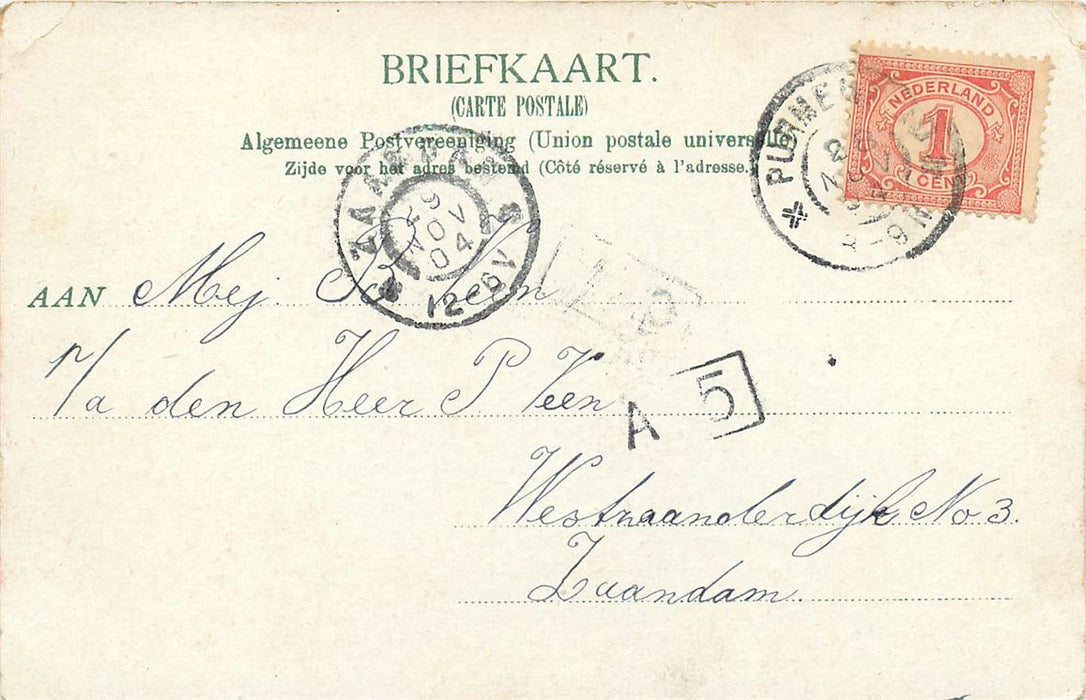 BRIEFKAART.
(CARTE POSTALE)
Algemeene Postvereeniging (Union postale universelle)
Zijde voor het adres bestemd (Côté réservé à l'adresse.)
NEDERLAND
1
CENT
PURMEREND
ZAANDAM
29
NOV
04
12-6V
AAN Mej. Veen
p/a den Heer P Veen
A 5
Westzaanderdijk No 3.
Zaandam.